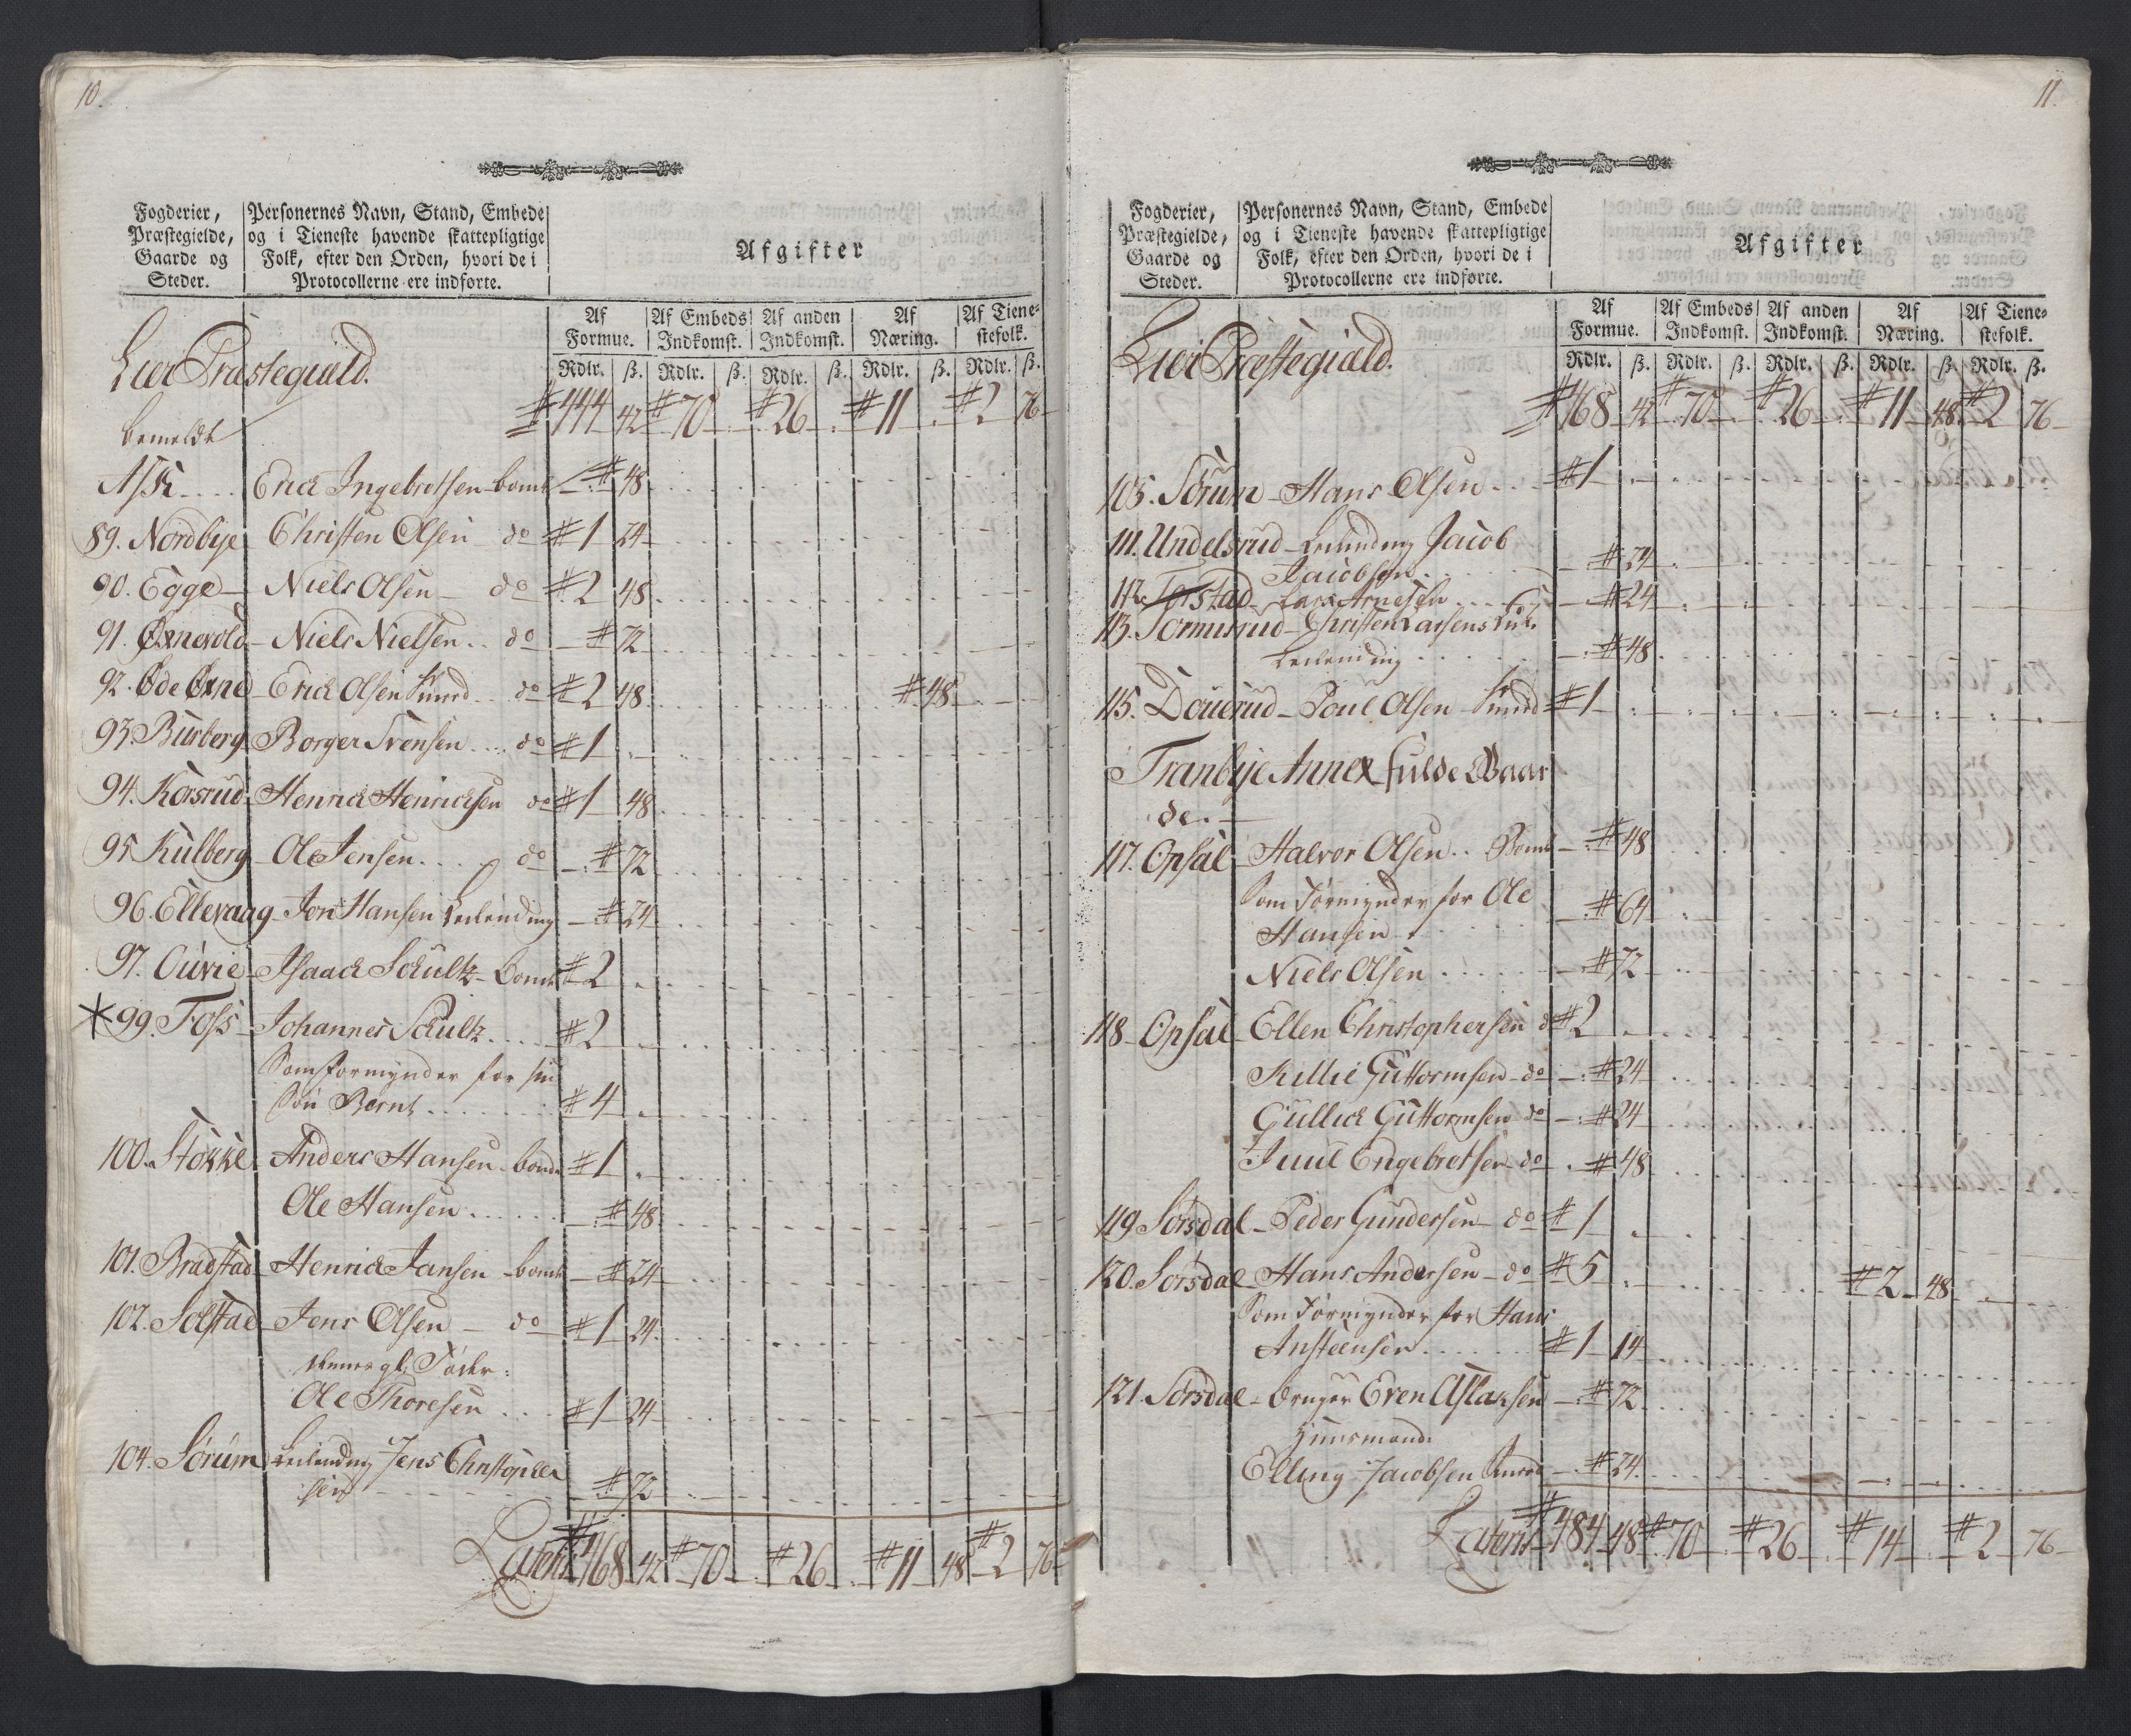 10.
Fogderier, Præstegielde, Gaarde og Steder.
Personernes Navn, Stand, Embede og i Tieneste havende skattepligtige Folk, efter den Orden, hvori de i Protocollerne ere indførte.
Afgifter
Af Formue. Af Embeds Indkomst. Af anden Indkomst. Af Næring. Af Tienestefolk.
Rdlr. ß. Rdlr. ß. Rdlr. ß. Rdlr. ß. Rdlr. ß.
Lier Præstegield.
#444 42 #70 #26 #11 #2 76
bemeldt
Ask Erick Ingebretsen bonde #48
89. Nordbye Christen Olsen do #1 24
90. Egge Niels Olsen do #2 48
91. Niels Nielsen do #72
92. Erick Olsen do #2 48 #48
93. Burberg Borger Svensen do #1
94. Korsrud Henrick Henricksen do #1 48
95 Kulberg Ole Jensen do #72
96. Ellevaag Jon Hansen Leilending #24
97. Ouvie Isaack Schultz bonde #2
99. Foss Johannes Schultz #2
Som Formynder for sin
Søn Bernt #4
100. Støkke Anders Hansen bonde #1
Ole Hansen #48
101. Bradstad Henrick Jansen bonde #24
102. Solstad Jens Olsen do #1 24
dennes gl. Fader:
Ole Thoresen #1 24
104. Sørum Leilending Jens Christopher
sen #72
Lateris #468 42 #70 #26 #11 48 #2 76
11.
Fogderier, Præstegielde, Gaarde og Steder.
Personernes Navn, Stand, Embede og i Tieneste havende skattepligtige Folk, efter den Orden, hvori de i Protocollerne ere indførte.
Afgifter
Af Formue. Af Embeds Indkomst. Af anden Indkomst. Af Næring. Af Tienestefolk.
Rdlr. ß. Rdlr. ß. Rdlr. ß. Rdlr. ß. Rdlr. ß.
Lier Præstegield.
#468 42 #70 #26 #11 48 #2 76
105. Sørum Hans Olsen #1
111. Undelsrud Leilending Jacob
Jacobsen #24
112. Torstad Lars Arnesen #24
113. Tormisrud Christen Larsens
Leilending #48
115. Douerud Poul Olsen #1
Tranbye Annex fulde Gaar
de.
117. Opsal Halvor Olsen Bonde #48
Som Formynder for Ole
Hansen #64
Niels Olsen #72
118 Opsal Ellen Christophersen do #2
Killie Guttormsen do #24
Gullick Guttormsen do #24
Juul Engebretsen do #48
119 Sørsdal Peder Gundersen do #1
120. Sørsdal Hans Andersen do #5 #2 48
Som Formynder for Hans
Ansteensen #1 14
121. Sørsdal bruger Even Aslaksen #72
Huusmand
Elling Jacobsen #24
Lateris #484 48 #70 #26 #14 #2 76